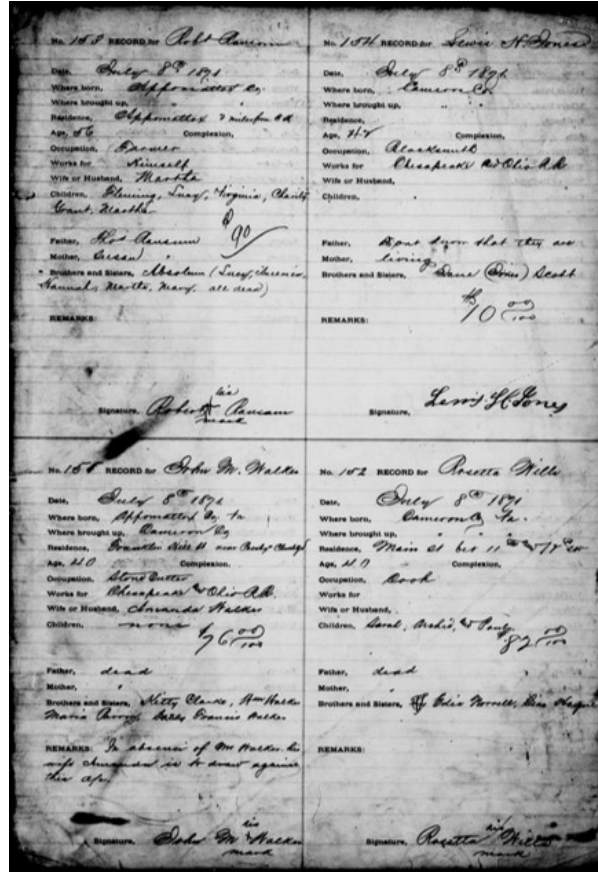 No. 153 RECORD for Robt Ransom
Date, July 8th 1871
Where born, Appomattox Co.
Where brought up, " "
Residence, Appomattox 2 miles from C.H.
Age, 56 Complexion,
Occupation, Farmer
Works for Himself
Wife or Husband, Martha
Children, Fleming, Lucy, Virginia, Charity
Grant, Martha
$90
Father, Thos Ransom
Mother, Susan "
Brothers and Sisters, Absolum (Lucy,
Hannah, Martha, Mary, all dead)
REMARKS:
Signature, Robert his mark Ransom
No. 154 RECORD for Lewis H. Jones
Date, July 8th 1871
Where born, Cameron Co
Where brought up, " "
Residence,
Age, 42 Complexion,
Occupation, Blacksmith
Works for Chesapeake and Ohio R.R.
Wife or Husband,
Children,
Father, dont know that they are
Mother, living
Brothers and Sisters, Jane Scott
$10 00/100
REMARKS:
Signature, Lewis H. Jones
No. 155 RECORD for John M. Walker
Date, July 8th 1871
Where born, Appomattox Co. Va
Where brought up, Cameron Co
Residence, Franklin near
Age, 40 Complexion,
Occupation, Stone Cutter
Works for Chesapeake & Ohio R.R.
Wife or Husband, Amanda Walker
Children, none
$76 00/100
Father, dead
Mother, "
Brothers and Sisters, Kitty Clarke, Wm Walker
Maria Francis Walker
REMARKS: In absence of Mr Walker his
wife Amanda is to draw against
this
Signature, John M his mark Walker
No. 152 RECORD for Rosetta Wills
Date, July 8th 1871
Where born, Cameron Co Va.
Where brought up, " "
Residence, Main St bet 11th & 12th St
Age, 40 Complexion,
Occupation, Cook
Works for
Wife or Husband,
Children, Sarah, &
82 00/100
Father, dead
Mother, "
Brothers and Sisters, Edie Norvell,
REMARKS:
Signature, Rosetta his mark Wills